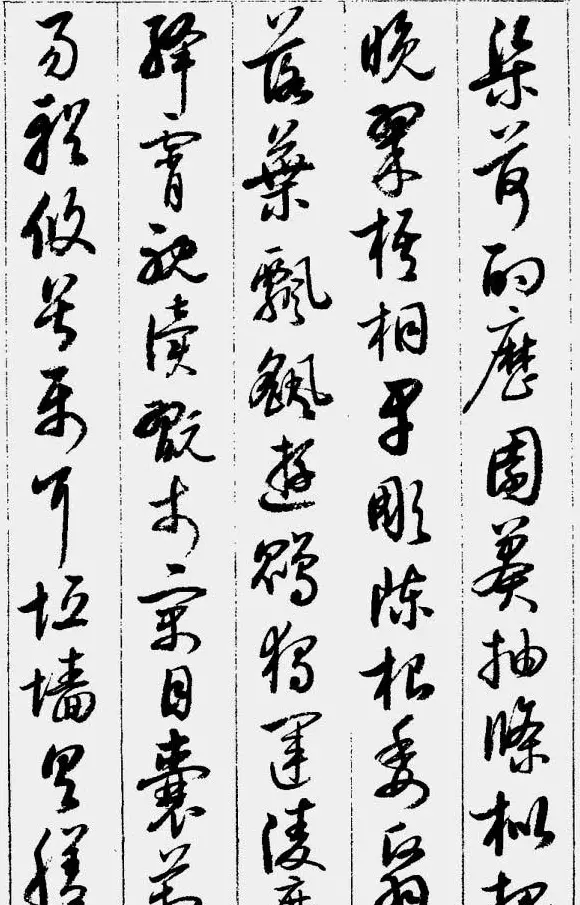 渠荷的歷園莽抽條枇杷
晚翠梧桐早彫陳根委翳
落葉飄颻遊鵾獨運凌摩
絳霄耽讀翫市寓目囊箱
易輶攸畏屬耳垣墻具膳